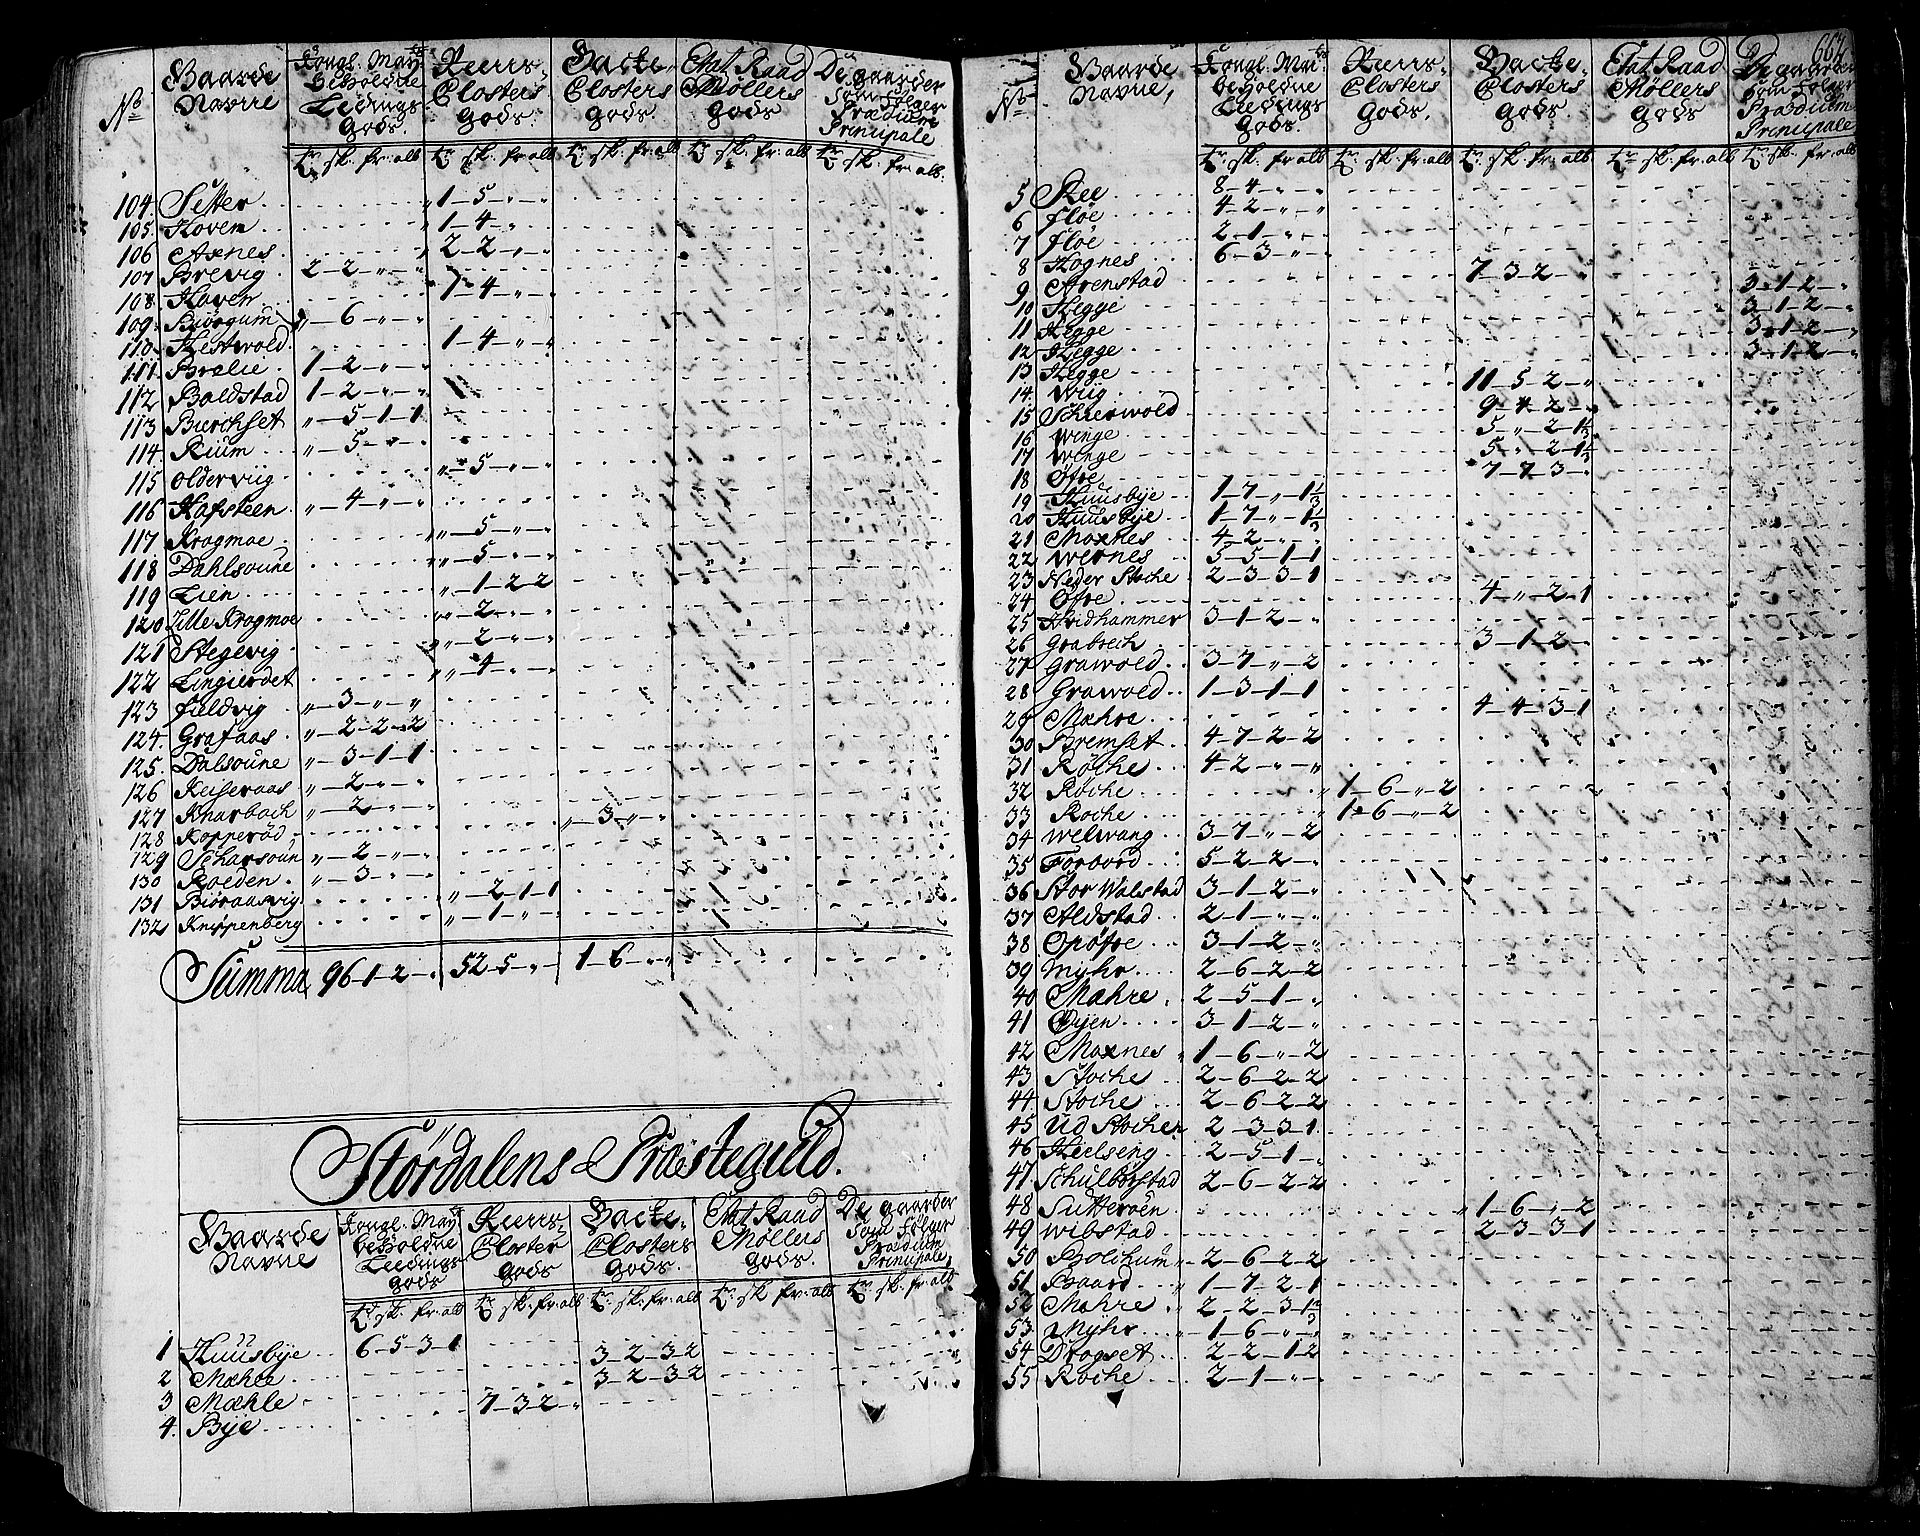 No Gaarde Navne | Kongl. May beholdne Leedings gods. | Reens Closters gods. | Backe Closters gods. | Etat Raad Møllers gods | De gaarder Som følger Prædium Principale
tr. sk: fr: alb | tr. sk: fr: alb | tr. sk: fr: alb | tr. sk: fr: alb | tr. sk: fr: alb.
104. Setter 1-5-"-"
105. Hovem 1-4-"-"
106 Axnes 2-2-"-"
107 Brevig 2-2-"-"
108. Haven 7-4-"-"
109. Biørgum "-6-"-"
110. Hestwold 1-4-"-"
111. Bralie 1-2-"-"
112 Boldstad 1-2-"-"
113 Bierchset "-5-1-1
114. Rium "-5-"-"
115 Olderviig "-5-"-"
116 Hafsteen "-4-"-"
117 Kragmoe "-5-"-"
118 Dahlsoune "-5-"-"
119 Lien "-1-2-2
120 Lille Kragmoe "-2-"-"
121 Stegevig "-2-"-"
122 Lingierdet "-4-"-"
123 Fieldvig "-3-"-"
124. Grafaas "-2-2-2
125. Dalsoune "-3-1-1
126 Reiseraas "-2-"-"
127 Knarbach "-2-"-"
128 Kopperød "-3-"-"
129 Scharsoun "-2-"-"
130 Roeden "-3-"-"
131 Biøraasvig "-2-1-1
132 Knippenberg "-1-"-"
Summa 96-1-2-" 52-5-"-" 1-6-"-"
Størdalens Præstegield.
Gaarde Navne | Kongl. May beholdne Leedings gods | Reens Closter gods | Backe Closters gods. | Etat Raad Møllers gods. | De gaarder Som følger Prædium Principale
tr. sk: fr: alb | tr. sk: fr: alb | tr. sk: fr: alb | tr. sk: fr: alb | tr. sk: fr: alb
1 Huusbye 6-5-3-1
2 Mæhle 3-2-3-2
3 Mæhle 3-2-3-2
4. Bye 7-3-2-"
662
No Gaarde Navne, | Kongl. May beholdne Leedings gods. | Reens Closters gods, | Backe Closters gods. | Etat Raad Møllers gods | De gaarder Som følger Prædium Principale
tr. sk: fr: alb | tr. sk: fr: alb | tr. sk: fr: alb | tr. sk: fr: alb | tr. sk: fr: alb
5 Ree 8-4-"-"
6 Fløe 4-2-"-"
7 Fløe 2-1-"-"
8 Hognes 6-3-"-"
9 Arenstad 7-3-2-"
10 Hegge 3-1-2-"
11 Hegge 3-1-2-"
12 Hegge 3-1-2-"
13 Hegge 3-1-2-"
14. Wiig 11-5-2-"
15 Schierwold 9-4-2-"
16 Winge 5-"-2-1 1/3
17 Winge 5-"-2-1 1/3
18 Øfre 7-7-3-"
19 Huusbye 1-7-"-1 1/3
20 Huusbye 1-7-"-1 1/3
21 Moxnes 4-2-"-"
22 Wernes 5-5-1-1
23 Neder Stoche 2-3-3-1
24 Øfre 4-"-2-1
25 Hvidhammer 3-1-2-"
26 Grabrech 3-1-2-"
27 Grawold 3-7-"-2
28 Grawold 1-3-1-1
29 Mæhre 4-4-3-1
30 Bremset 4-7-2-2
31 Røche 4-2-"-"
32 Røche 1-6-"-2
33 Roche 1-6-"-2
34 Welwang 3-7-"-2
35 Forbord 5-2-2-"
36 Stor Walstad 3-1-2-"
37 Aldstad 2-1-"-"
38 Opøfre 3-1-2-"
39 Myhr 2-6-2-2
40 Mæhre 2-5-1-"
41 Øyen 3-1-2-"
42 Moxnes 1-6-"-2
43 Stoche 2-6-2-2
44 Stoche 2-6-2-2
45 Ud Stocher 2-3-3-1
46 Hielseng 2-5-1-"
47 Schulborstad 2-6-2-2
48 Sutterøen 1-6-"-2
49 Wibstad 2-3-3-1
50 Holchum 2-6-2-2
51 Baard 1-7-2-1
52 Mæhre 2-2-3-1 2/3
53 Myhr 1-6-"-"
54 Drogset 2-2-1-2
55 Roche 2-1-"-"